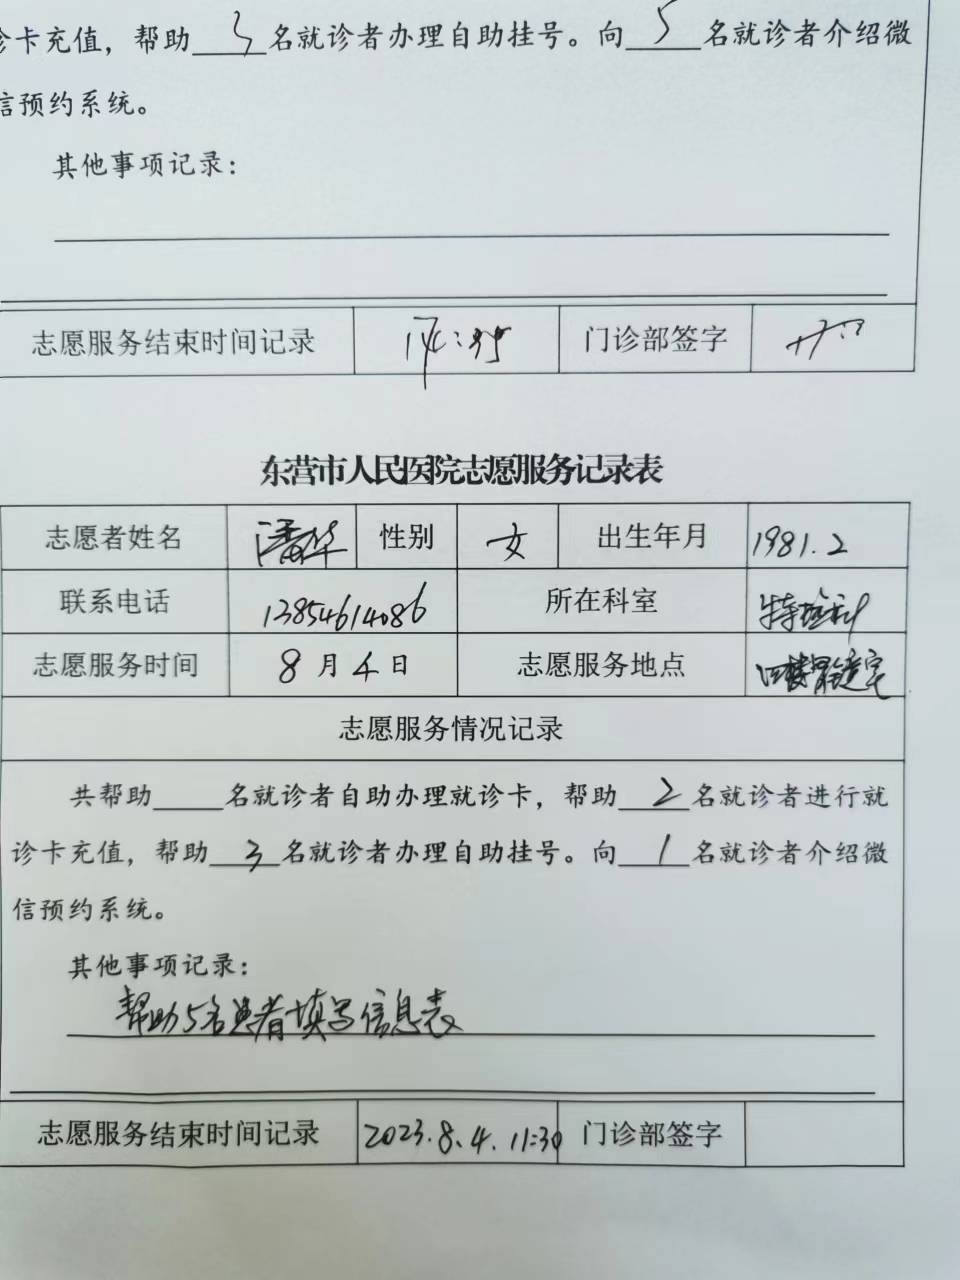 诊卡充值，帮助 3 名就诊者办理自助挂号。向 5 名就诊者介绍微
信预约系统。
其他事项记录：
志愿服务结束时间记录 门诊部签字
东营市人民医院志愿服务记录表
志愿者姓名 潘华 性别 女 出生年月 1981.2
联系电话 13854614086 所在科室 特检科
志愿服务时间 8月4日 志愿服务地点 四楼
志愿服务情况记录
共帮助 名就诊者自助办理就诊卡，帮助 2 名就诊者进行就
诊卡充值，帮助 3 名就诊者办理自助挂号。向 1 名就诊者介绍微
信预约系统。
其他事项记录：
帮助5名患者填写信息表
志愿服务结束时间记录 2023.8.4.11:30 门诊部签字